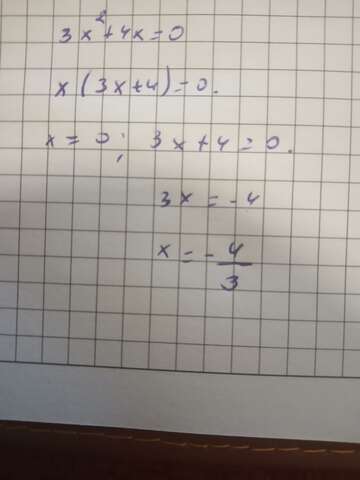 3x²+4x=0
x(3x+4)=0.
x=0; 3x+4=0.
3x=-4
x=-4/3